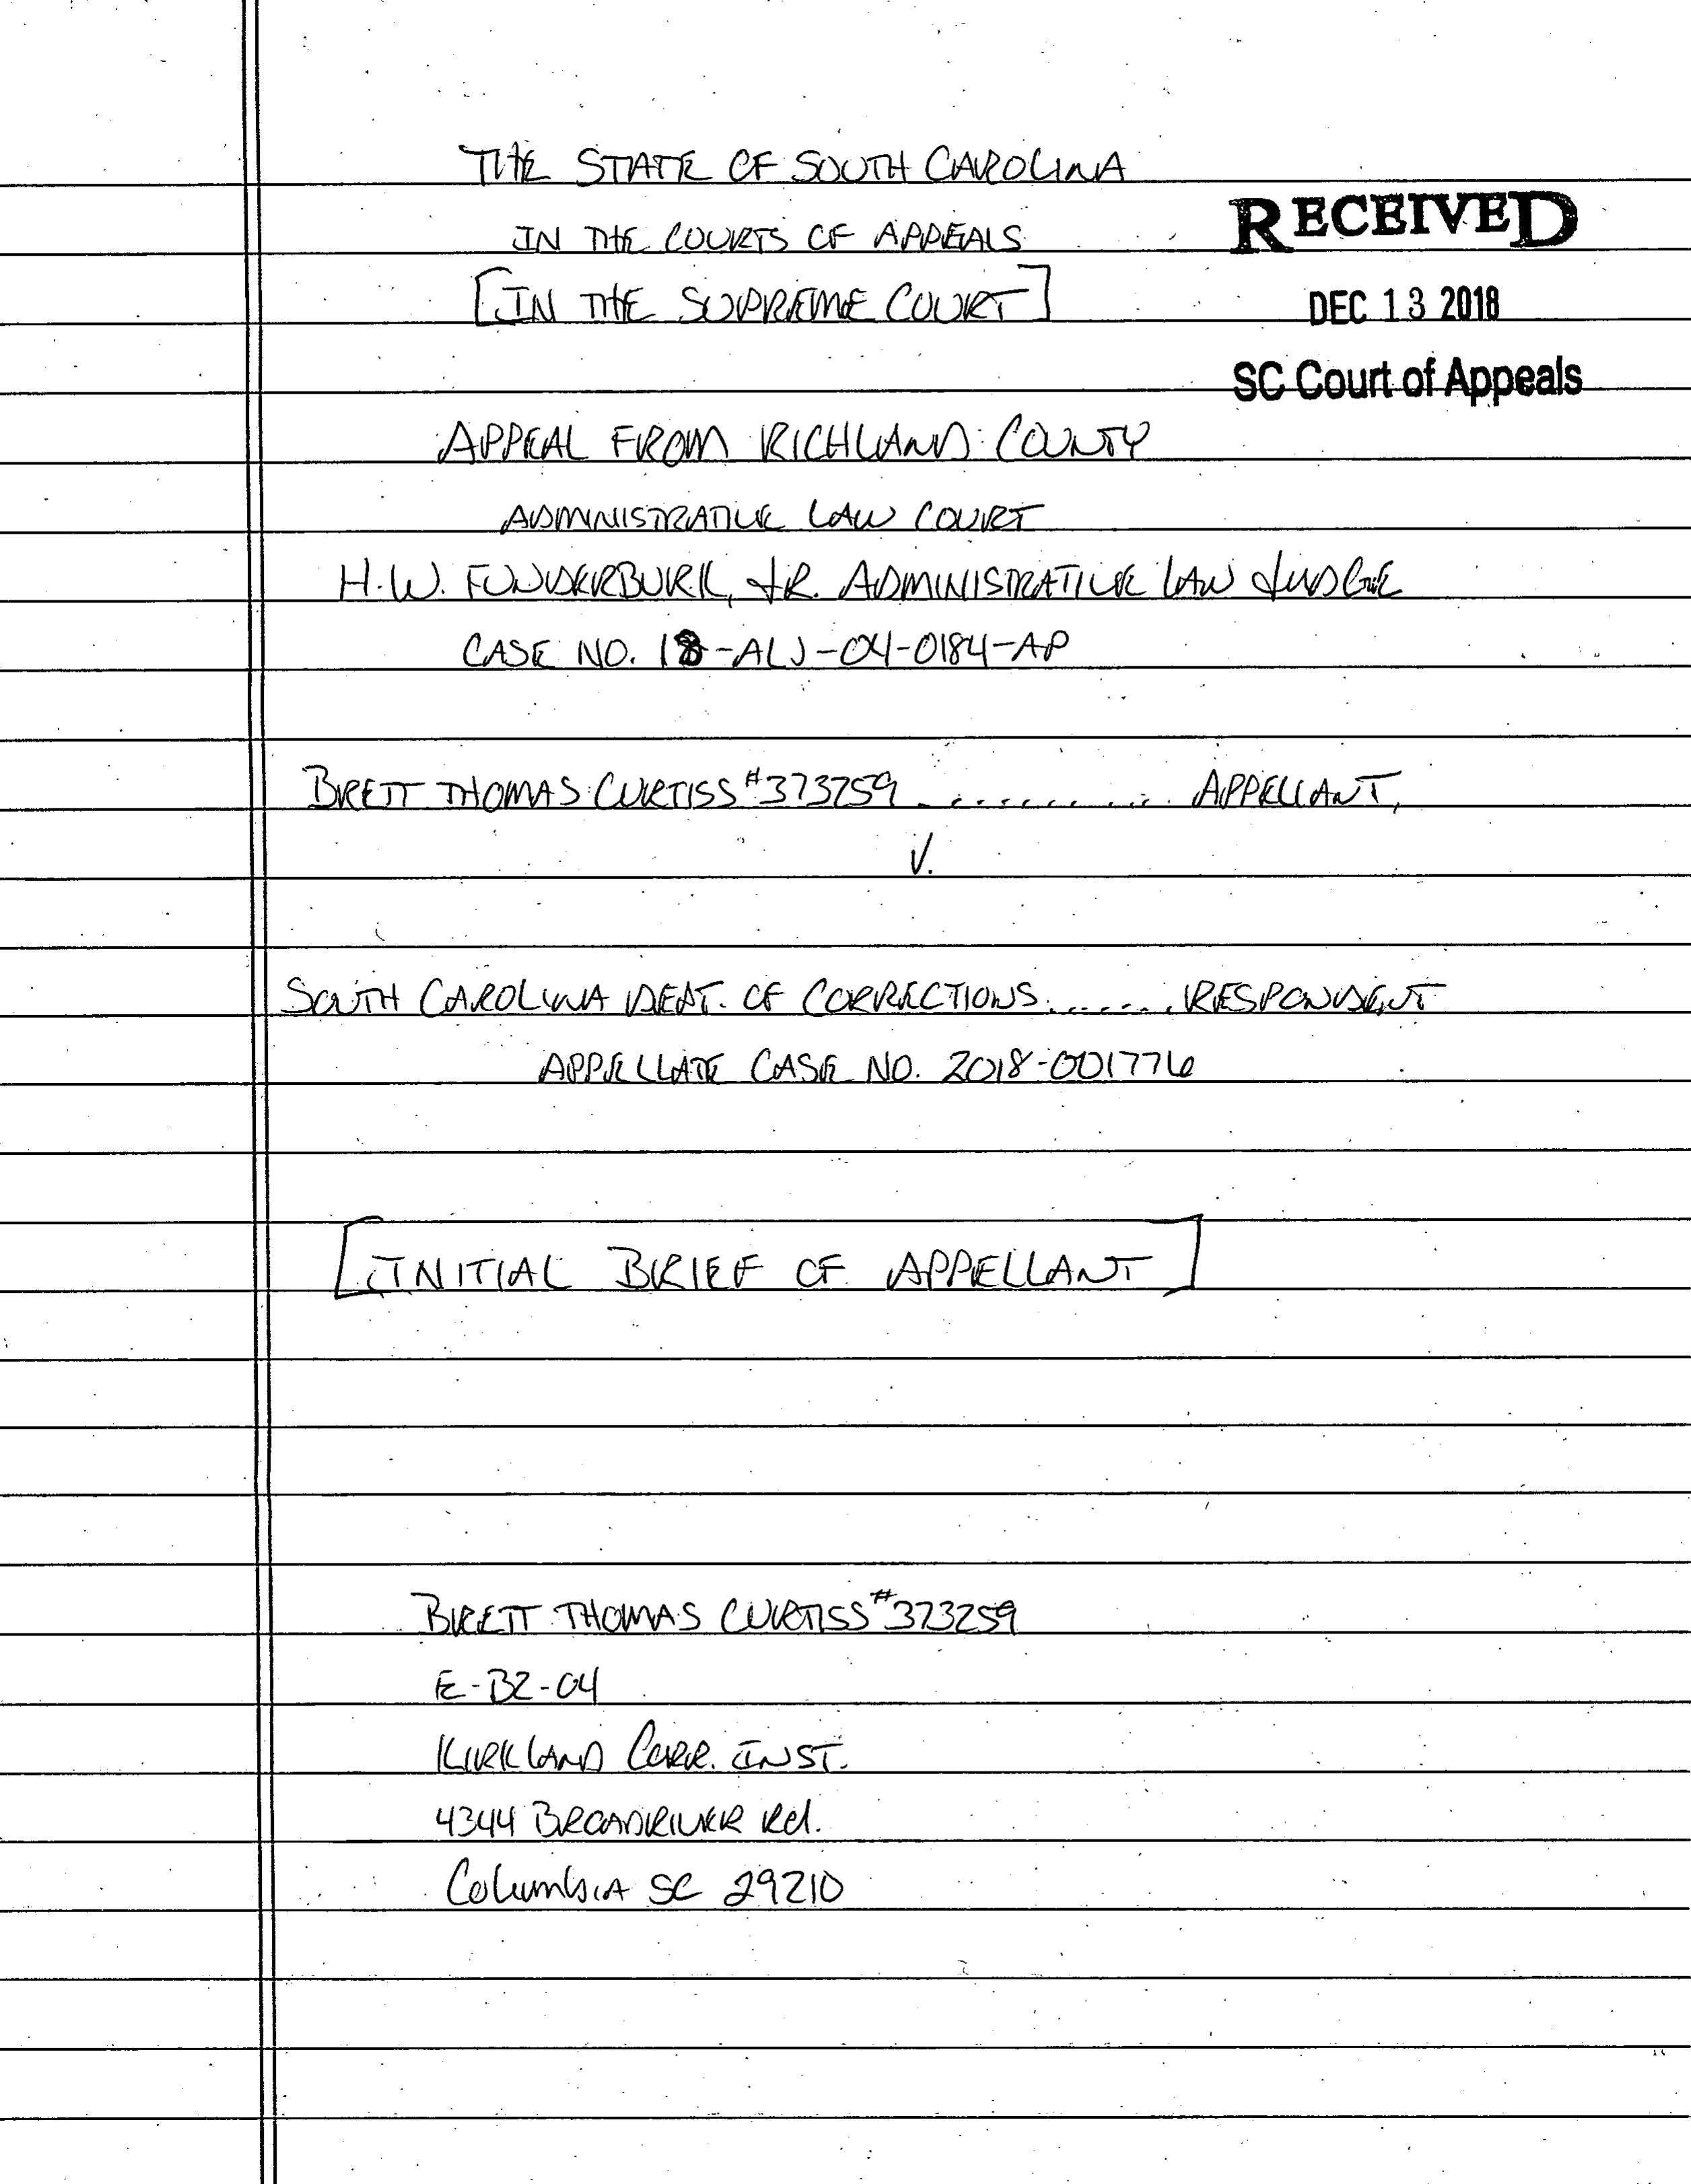 THE STATE OF SOUTH CAROLINA
IN THE COURTS OF APPEALS
[IN THE SUPREME COURT]
RECEIVED
DEC 13 2018
SC Court of Appeals
APPEAL FROM RICHLAND COUNTY
ADMINISTRATIVE LAW COURT
H.W. FUNDERBURK, JR. ADMINISTRATIVE LAW JUDGE
CASE NO. 18-ALJ-04-0184-AP
BRETT THOMAS CURTISS #373259 .......... APPELLANT,
V.
SOUTH CAROLINA DEPT. OF CORRECTIONS ...... RESPONDENT
APPELLATE CASE NO. 2018-001776
[INITIAL BRIEF OF APPELLANT]
BRETT THOMAS CURTISS #373259
E-B2-04
KIRKLAND CORR. INST.
4344 BROADRIVER Rd.
Columbia SC 29210